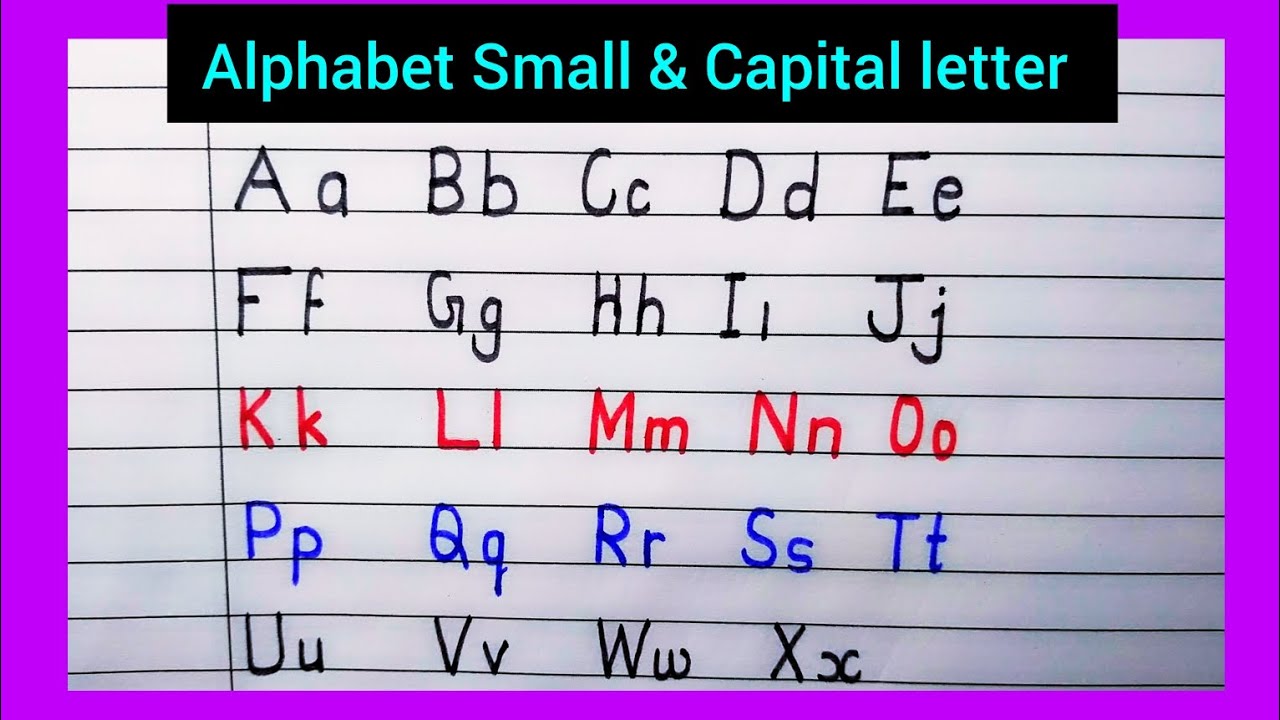 Alphabet Small & Capital letter
Aa Bb Cc Dd Ee
Ff Gg Hh Iı Jj
Kk Ll Mm Nn Oo
Pp Qq Rr Ss Tt
Uu Vv Ww Xx